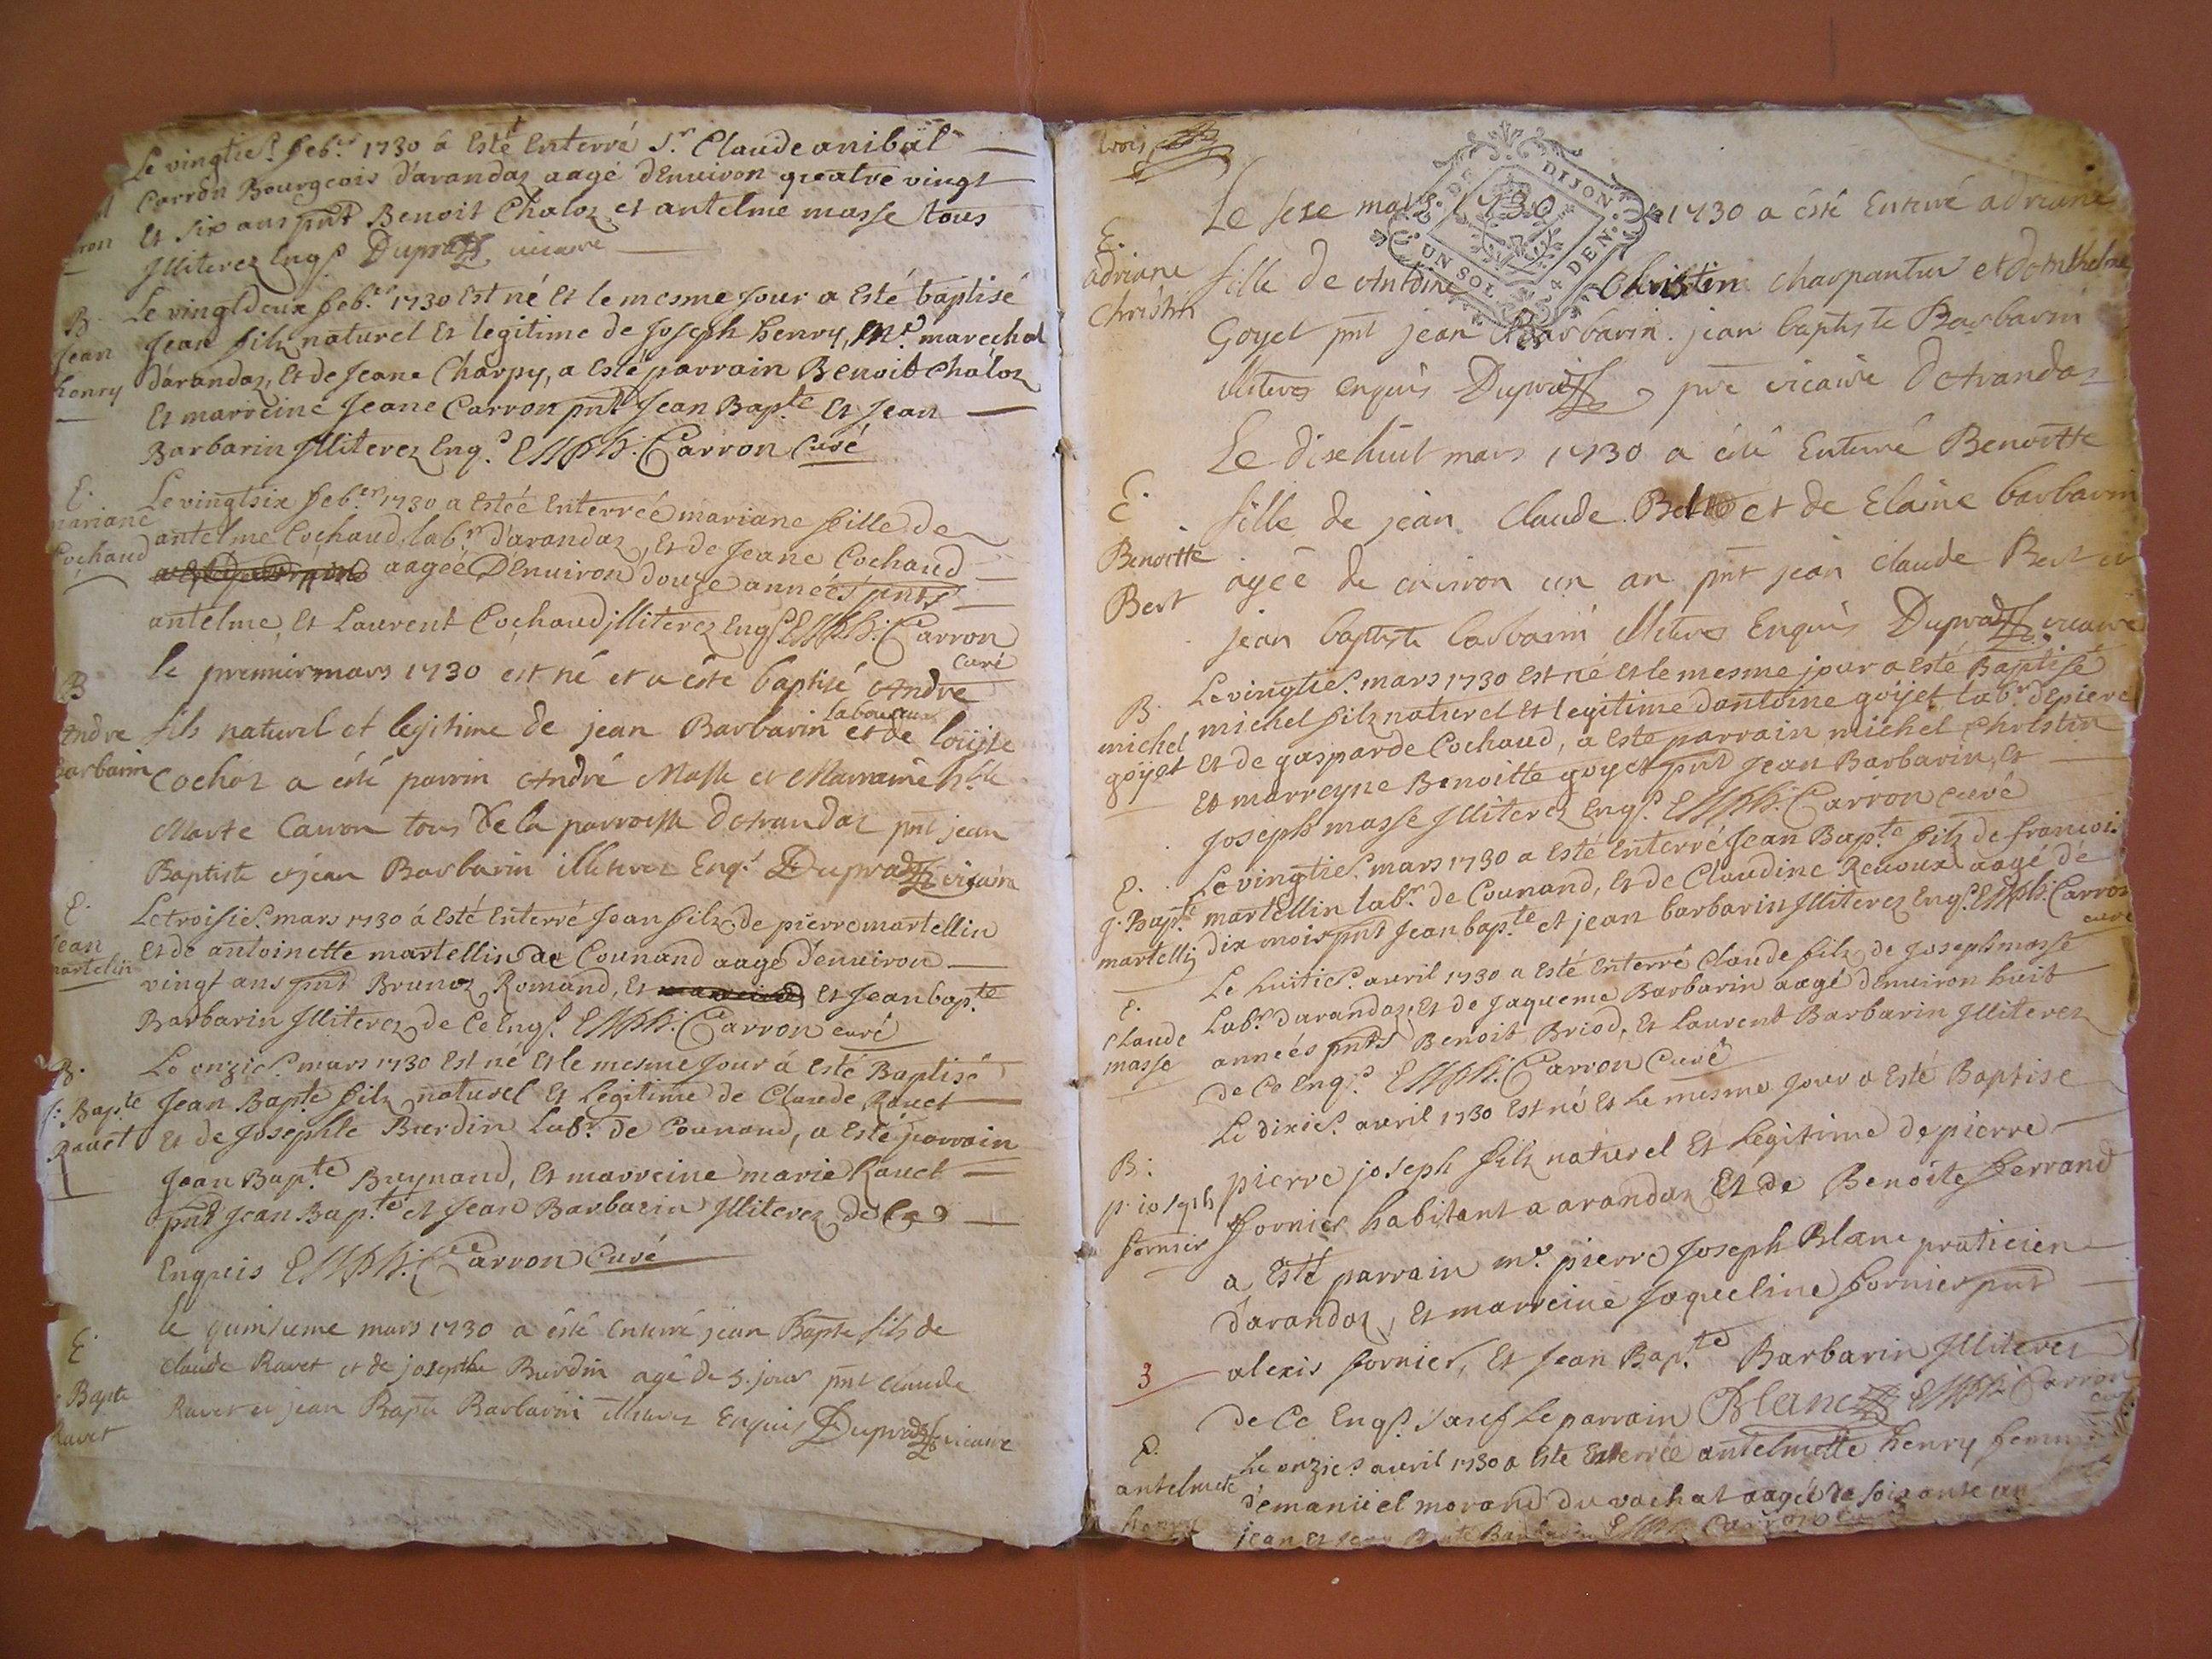 Le vingtie.^e feb.^r 1730 â Esté Enterré S.^r Claude anibal
Carron Bourgeois d'arandaz aagé d'Enuiron quatre vingt
ron
Et six ans pnt Benoit Chaloz et antelme masse tous
Illiterez Enq.^s Dupraz vicaire
B.
Jean
henry
Le vingtdeux feb.^r 1730 Est né Et le mesme Jour a Esté baptisé
Jean filz naturel Et legitime de Joseph henry, M.^e marechal
d'arandaz, Et de Jeane Charpy, a Esté parrain Benoit Chaloz
Et marreine Jeane Carron pnt Jean Bap.^te Et Jean
Barbarin Illiterez Enq.^s Carron Curé
E.
mariane
Cochaud
Le vingtsix feb.^er 1730 a Estéé Enterréé mariane fille de
antelme Cochaud lab.^r d'arandaz, Et de Jeane Cochaud
aagéé D'Enuiron douze annéés pnts
antelme, Et Laurent Cochaud illiterez Enq.^s Carron
curé
B
Andre
barbarin
le premier mars 1730 est né et a éste baptisé Andre
fils naturel et legitime de jean Barbarin laboureur et de loüise
Cochoz a ésté parrin André Masse et Marraine h.^lle
Marte Carron tous de la parroisse d'Arandaz pnt jean
Baptiste et jean Barbarin illiterez Enq.^s Dupraz vicaire
E.
Jean
martelin
Le troisie.^e mars 1730 á Esté Enterré Jean filz de pierre martellin
Et de antoinette martellin de Counand aagé d'enuiron
vingt ans pnt Brunoz Romand, Et Et Jean bap.^te
Barbarin Illiterez de Ce Enq.^s Carron curé
B.
J: Bap.^te
Rauet
Le onzie.^e mars 1730 Est né Et le mesme Jour á Esté Baptisé
Jean Bap.^te filz naturel Et Legitime de Claude Rauet
Et de Josephte Burdin Lab.^r de Counand, a Esté parrain
Jean Bap.^te Buynand, Et marreine marie Rauet
pnt Jean Bap.^te et Jean Barbarin Illiterez de Ce
Enquis Carron Curé
E.
Bapte
Ravet
le quinsieme mars 1730 a ésté Enterré jean Bapte fils de
Claude Ravet et de josephte Burdin agé de 5. jours pnt Claude
Ravet et jean Bapte Barbarin illiterez Enquis Dupraz vicaire
trois
C. DE DIJON
UN SOL 4 DEN.
E.
adriane
Christin
Le sese mars 1730 1730 a ésté Enterré adriane
fille de Antoine Christin charpantier et d'Anthelme
Goyet pnt jean Barbarin. jean baptiste Barbarin
illiteres enquis Dupraz pre vicaire d'Arandaz
E.
Benoitte
Bert
Le disehuit mars 1730 a été Enterré Benoitte
fille de jean Claude Bert et de Elaine barbarin
agéé de environ un an pnt jean claude Bert et
jean baptiste barbarin illiteres Enquis Dupraz vicaire
B.
michel
goÿet
Le vingtie.^e mars 1730 Est né Et le mesme jour a Esté Baptisé
michel filz naturel Et legitime d'antoine goÿet lab.^r depiere
Et de gasparde Cochaud, a Este parrain michel christin
Et marreyne Benoitte goyet pnt Jean Barbarin, Et
Joseph masse Illiterez Enq.^s Carron curé
E.
J. Bap.^te
martellin
Le vingtie.^e mars 1730 a Esté Enterré Jean Bap.^te filz de francois
martellin lab.^r de Counand, Et de Claudine Reuoux aagé dé
dix mois pnt Jean bap.^te et jean barbarin Illiterez Enq.^s Carron
curé
E.
Claude
masse
Le huitie.^e auril 1730 a Esté Enterré Claude filz de Joseph masse
Lab.^r d'arandaz, Et de Jaqueme Barbarin aagé d'enuiron huit
annéés pnts Benoit Briod, Et Laurent Barbarin Illiterez
de Ce Enq.^s Carron Curé
B:
p. ioseph
fornier
Le dixie.^e auril 1730 Est né Et Le mesme Jour a Esté Baptisé
pierre joseph filz naturel Et Legitime de pierre
fornier habitant a arandaz Et de Benoite ferrand
a Esté parrain m.^e pierre Joseph Blanc praticien
d'arandaz, Et marreine Jaqueline fornier pnt
3
alexis fornier, Et Jean Bap.^te Barbarin Illiterez
de Ce Enq.^s sauf Le parrain Blanc Carron
curé
E.
antelmete
henry
Le onzie.^e auril 1730 a Esté Enterréé antelmette henry femme
d'emanuel morand du vachat aagéé de soixante an
jean Et Jean Bapte Barbarin Carron